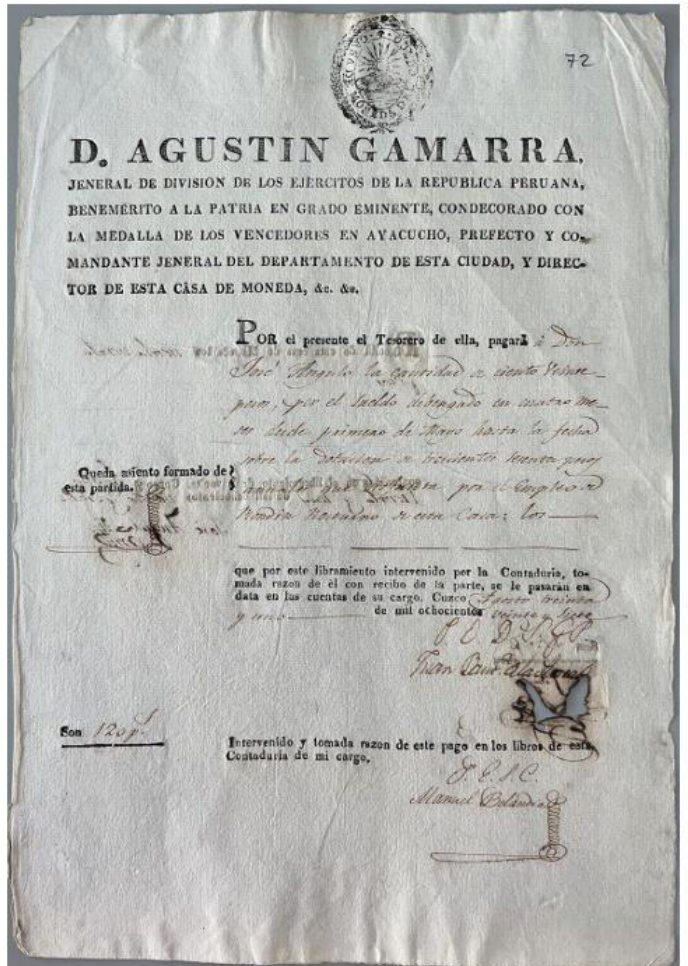 72
D. AGUSTIN GAMARRA,
JENERAL DE DIVISION DE LOS EJÉRCITOS DE LA REPUBLICA PERUANA,
BENEMÉRITO A LA PATRIA EN GRADO EMINENTE, CONDECORADO CON
LA MEDALLA DE LOS VENCEDORES EN AYACUCHO, PREFECTO Y CO-
MANDANTE JENERAL DEL DEPARTAMENTO DE ESTA CIUDAD, Y DIREC-
TOR DE ESTA CASA DE MONEDA, &c. &c.
POR el presente el Tesorero de ella, pagará á Don
José Angulo la cantidad de ciento veinte
pesos, por el sueldo debengado en cuatro me-
ses desde primero de Mayo hasta la fecha
sobre la dotacion de trecientos sesenta pesos
por el Empleo de
de esta Casa: los
Queda asiento formado de
esta partida.
que por este libramiento intervenido por la Contaduria, to-
mada razon de él con recibo de la parte, se le pasarán en
data en las cuentas de su cargo. Cuzco Agosto treinta
y uno de mil ochocientos veinte y siete
Son 120 ps.
Intervenido y tomada razon de este pago en los libros de esta
Contaduria de mi cargo.
Manuel